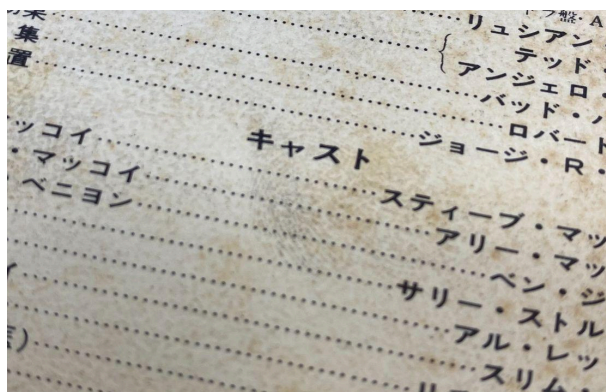 盤・A
リュシアン・
テッド・
アンジェロ・
果………バッド・
集………ロバート
置………ジョージ・R・
キャスト
ッコイ………スティーブ・マッ
・マッコイ………アリー・マッ
・ベニヨン………ベン・ジ
………サリー・ストル
………アル・レッ
………スリム・